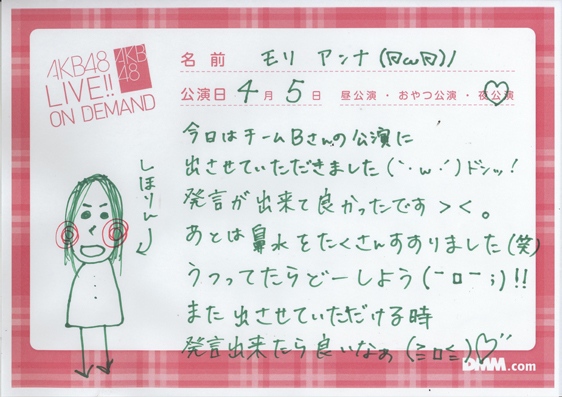 AKB48
LIVE!!
ON DEMAND
AKB
48
名前 モリ アンナ (白ω白)ﾉ
公演日 4月 5日 昼公演・おやつ公演・夜公演
今日はチームBさんの公演に
出させていただきました (｀･ω･´) ドンッ!
発言が出来て良かったです ><。
あとは鼻水をたくさんすすりました(笑)
うつってたらどーしよう (￣ロ￣;) !!
また出させていただける時
発言出来たら良いなぁ (≧ロ≦)♡"
しほりん
DMM.com